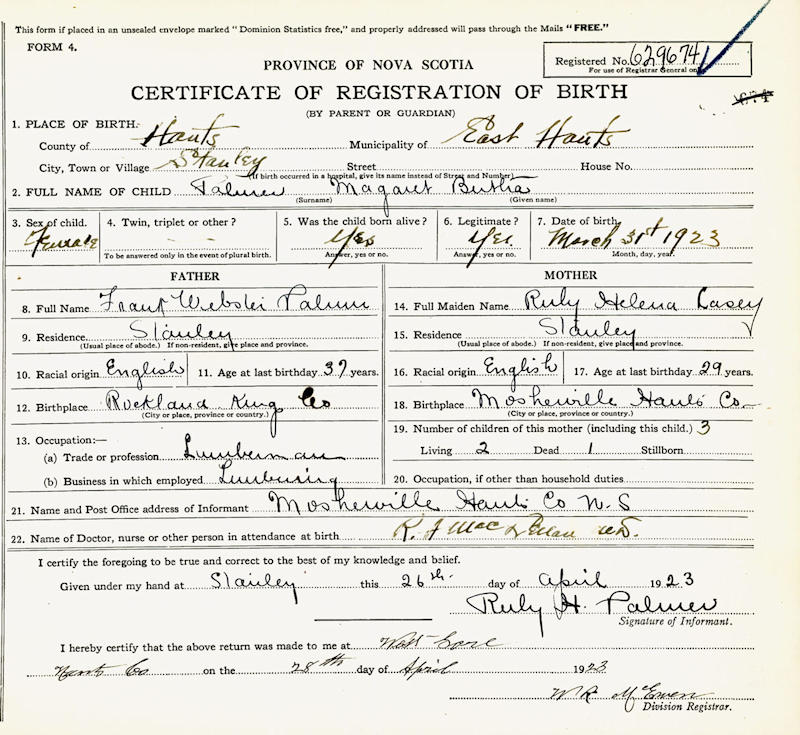 This form if placed in an unsealed envelope marked "Dominion Statistics free," and properly addressed will pass through the Mails "FREE."
FORM 4.
Registered No. 629674
For use of Registrar General only
PROVINCE OF NOVA SCOTIA
CERTIFICATE OF REGISTRATION OF BIRTH
(BY PARENT OR GUARDIAN)
1. PLACE OF BIRTH.
County of Hants Municipality of East Hants
City, Town or Village Stanley Street House No.
(If birth occurred in a hospital, give its name instead of Street and Number)
2. FULL NAME OF CHILD Palmer Magaret Bertha
(Surname) (Given name)
3. Sex of child. 4. Twin, triplet or other? 5. Was the child born alive? 6. Legitimate? 7. Date of birth
Female - - Yes Yes March 31st 1923
To be answered only in the event of plural birth. Answer, yes or no. Answer, yes or no. Month, day, year.
FATHER
8. Full Name Frank Webster Palmer
9. Residence Stanley
(Usual place of abode.) If non-resident, give place and province.
10. Racial origin English 11. Age at last birthday 37 years.
12. Birthplace Rockland Kings Co
(City or place, province or country.)
13. Occupation:—
(a) Trade or profession Lumberman
(b) Business in which employed Lumbering
MOTHER
14. Full Maiden Name Ruby Helena Casey
15. Residence Stanley
(Usual place of abode.) If non-resident, give place and province.
16. Racial origin English 17. Age at last birthday 29 years.
18. Birthplace Mosherville Hants Co
(City or place, province or country.)
19. Number of children of this mother (including this child.) 3
Living 2 Dead 1 Stillborn
20. Occupation, if other than household duties
21. Name and Post Office address of Informant Mosherville Hants Co N.S
22. Name of Doctor, nurse or other person in attendance at birth
I certify the foregoing to be true and correct to the best of my knowledge and belief.
Given under my hand at Stanley this 26th. day of April 1923
Ruby H. Palmer
Signature of Informant.
I hereby certify that the above return was made to me at
Hants Co on the 28th day of April 1923
W R McEwen
Division Registrar.